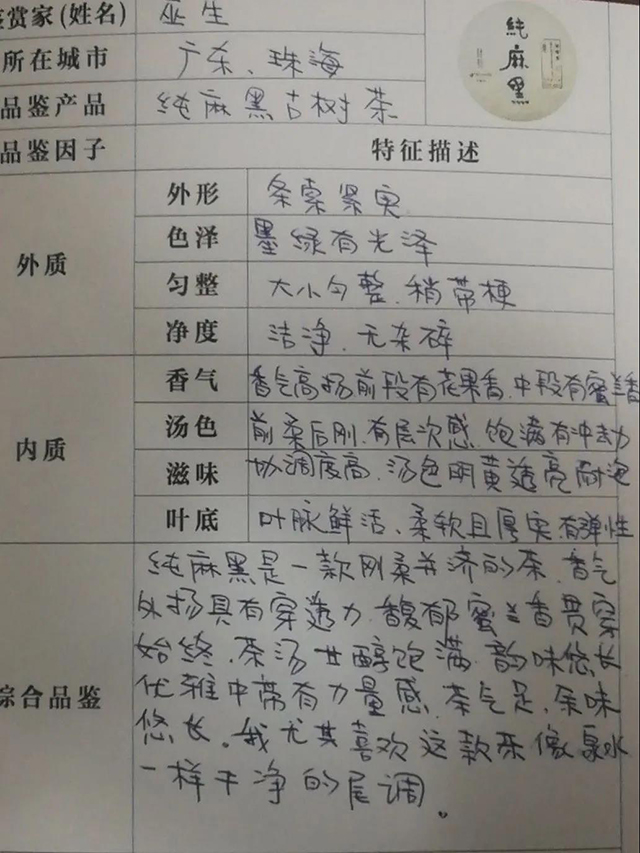 鉴赏家(姓名) 巫生
所在城市 广东、珠海
品鉴产品 纯麻黑古树茶
純麻黑
品鉴因子 特征描述
外质
外形 条索紧实
色泽 墨绿有光泽
匀整 大小匀整、稍带梗
净度 洁净、无杂碎
内质
香气 香气高扬前段有花果香、中段有蜜兰香
汤色 前柔后刚、有层次感、饱满有冲劲
滋味 协调度高、汤色明黄透亮耐泡
叶底 叶脉鲜活、柔软且厚实、有弹性
综合品鉴
纯麻黑是一款刚柔并济的茶、香气
外扬具有穿透力、馥郁蜜兰香贯穿
始终、茶汤甘醇饱满、韵味悠长
优雅中带有力量感、茶气足、余味
悠长。我尤其喜欢这款茶像泉水
一样干净的尾调。